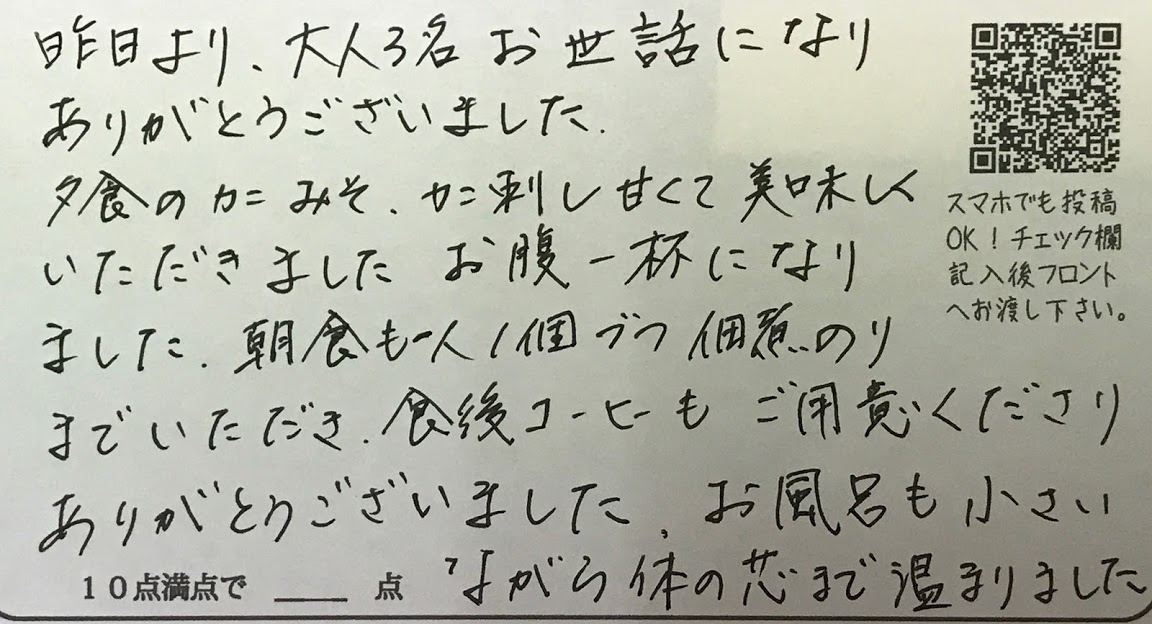 昨日より、大人3名 お世話になり
ありがとうございました.
夕食のカニみそ、カニ刺し甘くて美味しく
いただきました お腹一杯になり
ました. 朝食も一人1個づつ佃煮のり
までいただき.食後コーヒーもご用意くださり
ありがとうございました, お風呂も小さい
ながら体の芯まで温まりました
スマホでも投稿
OK!チェック欄
記入後フロント
へお渡し下さい。
10点満点で ____ 点